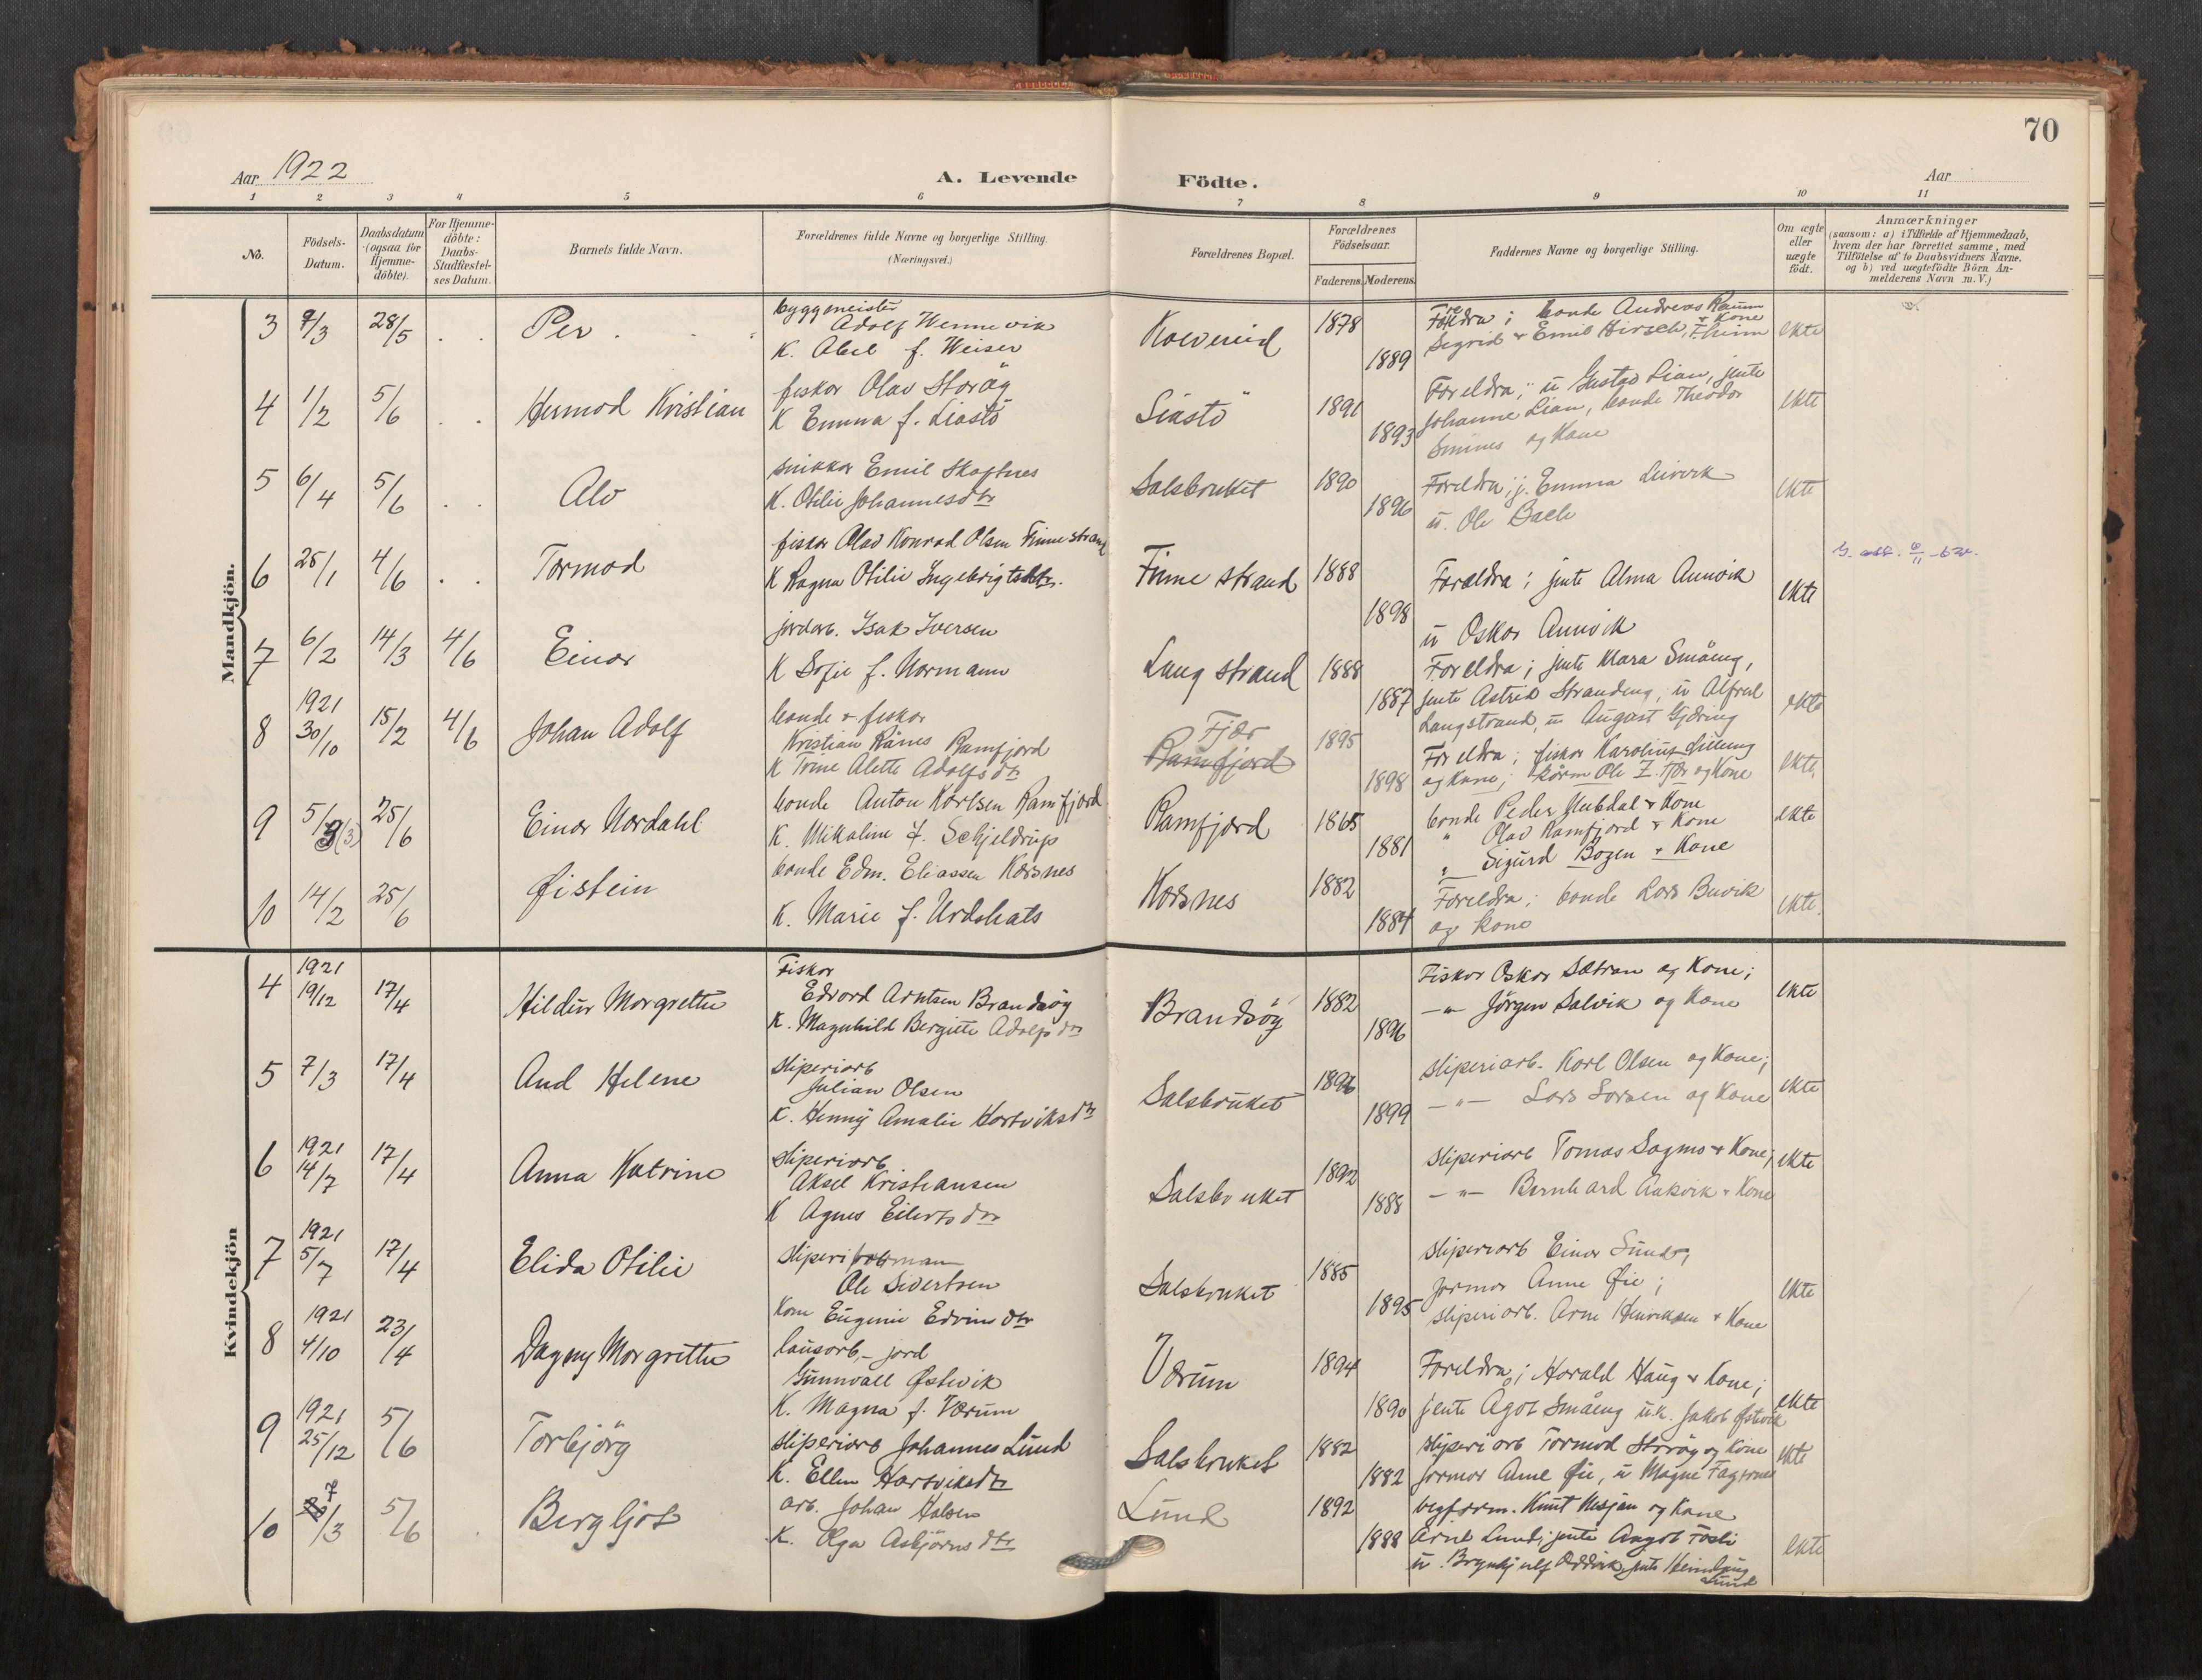 70
Aar 1922
A. Levende Födte.
Aar
1 2 3 4 5 6 7 8 9 10 11
No.
Födsels-Datum.
Daabsdatum (ogsaa for Hjemme-döbte).
For Hjemme-döbte: Daabs-Stadfæstel-ses Datum.
Barnets fulde Navn.
Forældrenes fulde Navne og borgerlige Stilling.
(Næringsvei.)
Forældrenes Bopæl.
Forældrenes Födselsaar.
Faderens. Moderens.
Faddernes Navne og borgerlige Stilling.
Om ægte eller uægte födt.
Anmærkninger
(saasom: a) i Tilfælde af Hjemmedaab, hvem der har forrettet samme, med Tilföielse af to Daabsvidners Navne. og b) ved uægtefödte Börn An-melderens Navn m. V.)
Mandkjön.
3 9/3 28/5 Per
byggmeister
Adolf Wennevik
K. Abel f. Weiser
Kolvereid 1878 1889
Foreldra; bonde Andreas Raum + Kone
Sigrid + Emil Hirsch,
ekte
4 1/2 5/6 Hermod Kristian
fiskar Olav Storøy
K Emma f. Liastö
Liastö 1891 1893
Foreldra; u Gustav Lian, jente
Johanne Lian, bonde Theodor
og Kone
ekte
5 6/4 5/6 Alv
snikkar Emil Skaftnes
K. Otilie Johannesdtr
Salsbruket 1890 1896
Foreldra; j. Emma
u. Ole Bach
ekte
6 25/1 4/6 Tormod
fiskar Olav Konrad Olsen Finnestrand
K Ragna Otilie Ingebrigtsdtr.
Finnestrand 1888 1898
Foreldra; jente Alma Aunvik
u Oskar Aunvik
ekte
7 6/2 14/3 4/6 Einar
jordarb. Isak Iversen
K Sofie f. Normann
Langstrand 1888 1887
Foreldra; jente Klara Småeng,
jente Astrid Strandeng, u Alfred
Langstrand, u August Gjæring
ekte
8 1921 30/10 15/2 4/6 Johan Adolf
bonde + fiskar
Kristian Rånes Ramfjord
K Torine Alette Adolfsdtr
Fjær
Ramfjord
1895 1898
Foreldra; fiskar Karolius
og Kone; Ole Z. Fjær og Kone
ekte
9 5/3 (3) 25/6 Einar Nordahl
bonde Anton Karlsen Ramfjord
K. Mikaline f. Schjeldrup
Ramfjord 1865 1881
bonde Peder Hubdal + Kone
" Olav Ramfjord + Kone
" Sigurd Bogen + Kone
ekte
10 14/2 25/6 Øistein
bonde Edm. Eliassen Korsnes
K. Marie f. Urdshals
Korsnes 1882 1884
Foreldra; bonde Lars Buvik
og kone
ekte
Kvindekjön
4 1921 19/12 17/4 Hildur Margrethe
Fiskar
Edvard Arntsen Brandsøy
K. Magnhild Bergitte Adolfsdtr
Brandsøy 1882 1896
Fiskar Oskar Sætran og Kone;
-"- Jörgen Salvik og Kone
ekte
5 7/3 17/4 Aud Helene
sliperiarb
Julian Olsen
K. Henny Amalie Hartviksdtr
Salsbruket 1896 1899
sliperiarb. Karl Olsen og Kone;
-"- Lars Larsen og Kone
ekte
6 1921 14/7 17/4 Anna Katrine
sliperiarb
Aksel Kristiansen
K Agnes Eilertsdtr
Salsbruket 1892 1888
sliperiarb Tomas Sagmo + Kone;
-"- Bernhard Aakvik + Kone
ekte
7 1921 5/7 17/4 Elida Otilie
sliperiformann
Ole Sivertsen
Kone Eugenie Edvinsdtr
Salsbruket 1885 1895
sliperiarb Einar Sund,
jormor Anne Øie;
sliperiarb. Arne Henriksen + Kone
ekte
8 1921 4/10 23/4 Dagny Margrethe
lausarb, - jord
Gunnvall Østvik
K. Magna f. Værum
Værum 1894 1890
Foreldra; Harald Haug + Kone;
jente Ågot Småeng u.k. Jakob Østvik
ekte
9 1921 25/12 5/6 Torbjörg
sliperiarb Johannes Lund
K. Ellen Hartviksdtr
Salsbruket 1882 1882
sliperiarb Tormod Storøy og Kone
jormor Anne Øie, u Magne Fagernes
ekte
10 7/3 5/6 Bergljot
arb. Johan Halsen
K. Olga Asbjörnsdtr
Lund 1892 1888
vegform. Knut Nesjan og Kone
Arne Lund, jente Angot
u. Brynhjulf jente
Lund
ekte